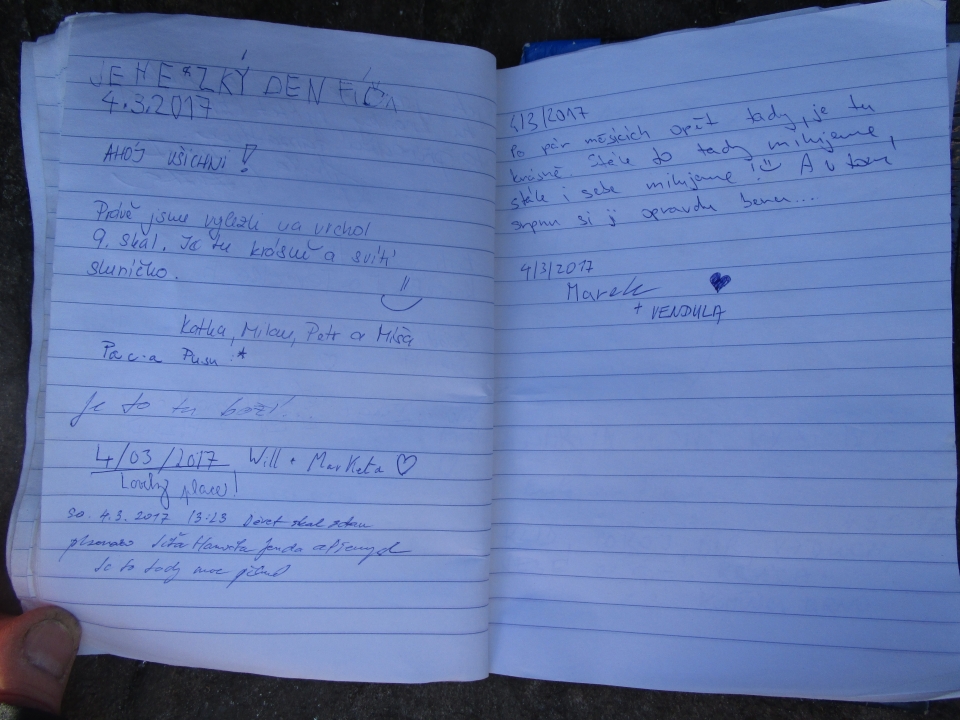 JE HEZKÝ DEN
4.3.2017
AHOJ VŠICHNI!
Právě jsme vylezli na vrchol
9. skal. Je tu krásně a svítí
sluníčko.
Katka, Milan, Petr a Míša
Pac a Pusu :*
je to tu boží!...
4/03/2017 Will + Marketa ♡
Lovely place!
so. 4.3.2017 13:23 Devět skal
Jenda
Je to tady moc pěkné
4/3/2017
Po pár měsících opět tady, je tu
krásně. Stále to tady milujeme,
stále i sebe milujeme! A v tom
srpnu si ji opravdu beru...
4/3/2017
Marek ♥
+ VENDULA